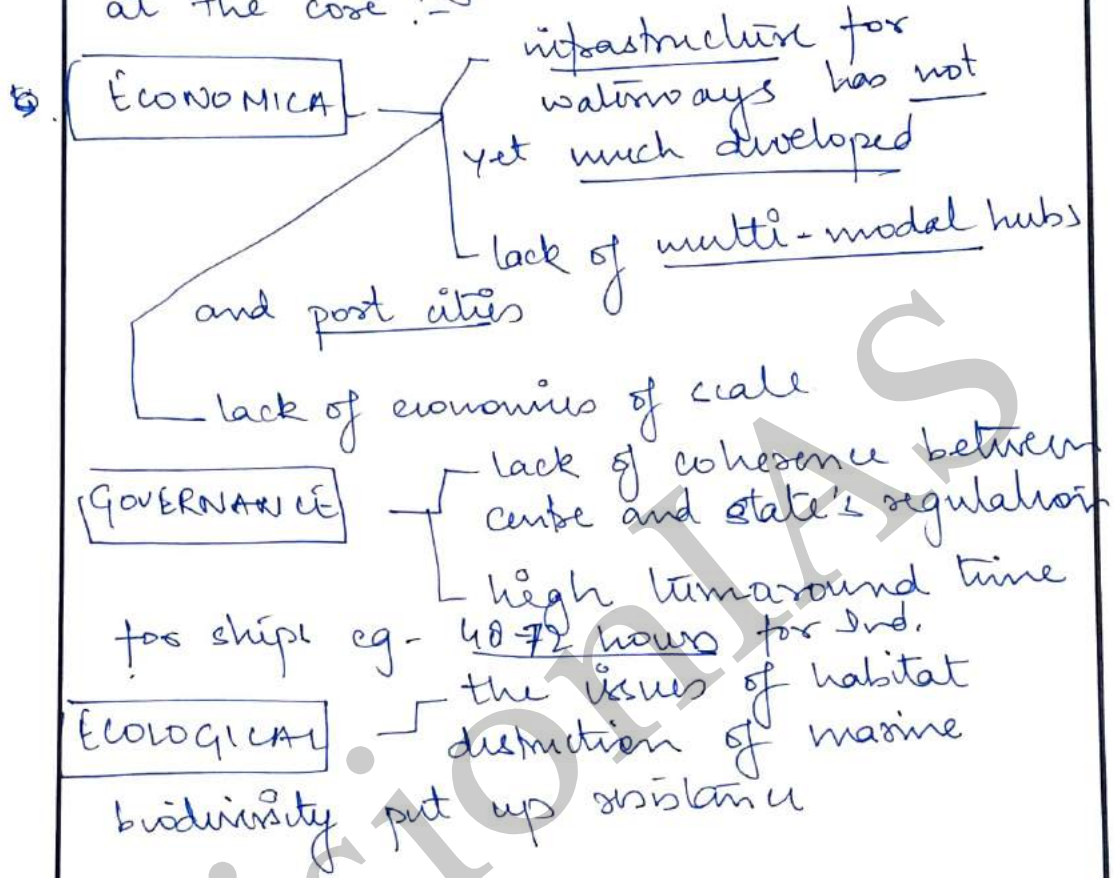 at the core :-
ECONOMICAL
infrastructure for
waterways has not
yet much developed
lack of multi-modal hubs
and port cities
lack of economies of scale
GOVERNANCE
lack of coherence between
centre and state's regulation
high turnaround time
for ships eg- 48-72 hours for Ind.
ECOLOGICAL
the issues of habitat
destruction of marine
biodiversity put up resistance
VisionIAS